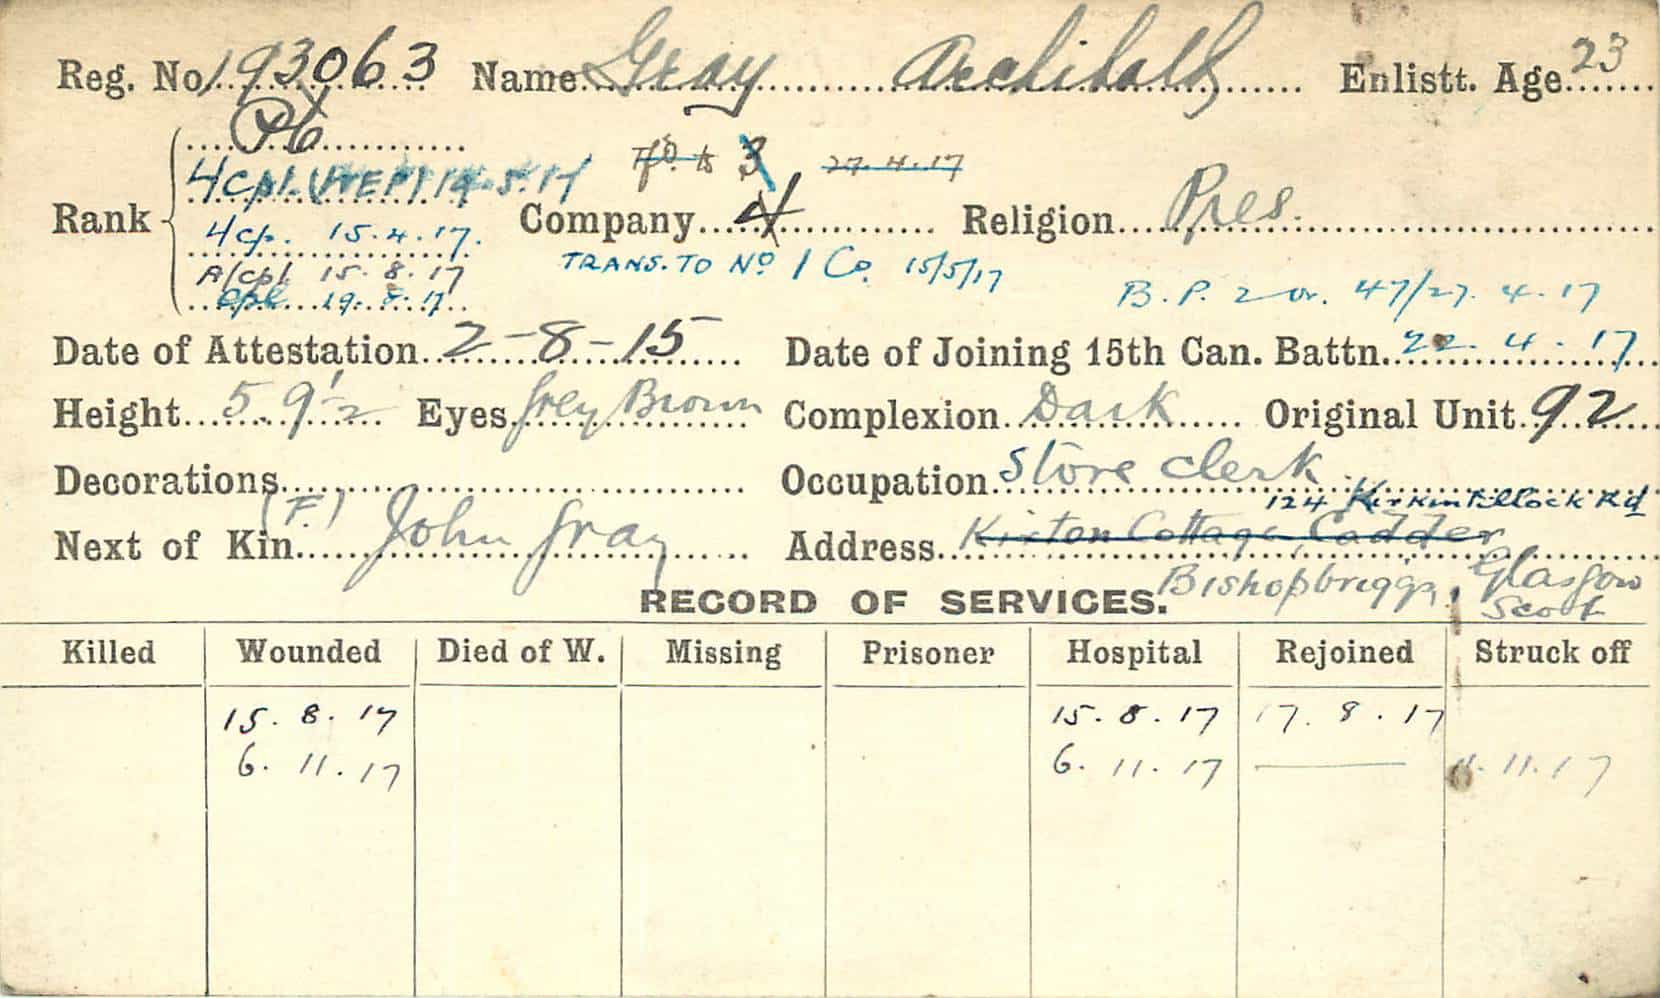 Reg. No. 193063 Name Gray Archibald Enlistt. Age 23
Pte
L/Cpl. 14.5.17 27.4.17
Rank L/Cp. 15.4.17. Company 4 Religion Pres.
A/Cpl 15.8.17 TRANS. TO No 1 Co. 15/5/17
Cpl 19.8.17 B. P. 2 Or. 47/27.4.17
Date of Attestation 2-8-15 Date of Joining 15th Can. Battn. 22.4.17
Height 5.9½ Eyes Grey Brown Complexion Dark Original Unit 92
Decorations Occupation Store clerk
124 Kirkintillock Rd
(F.)
Next of Kin John Gray Address Kirton Cottage, Cadder
Bishopbriggs, Glasgow
Scot
RECORD OF SERVICES.
Killed Wounded Died of W. Missing Prisoner Hospital Rejoined Struck off
15.8.17 15.8.17 17.8.17
6.11.17 6.11.17 11.17